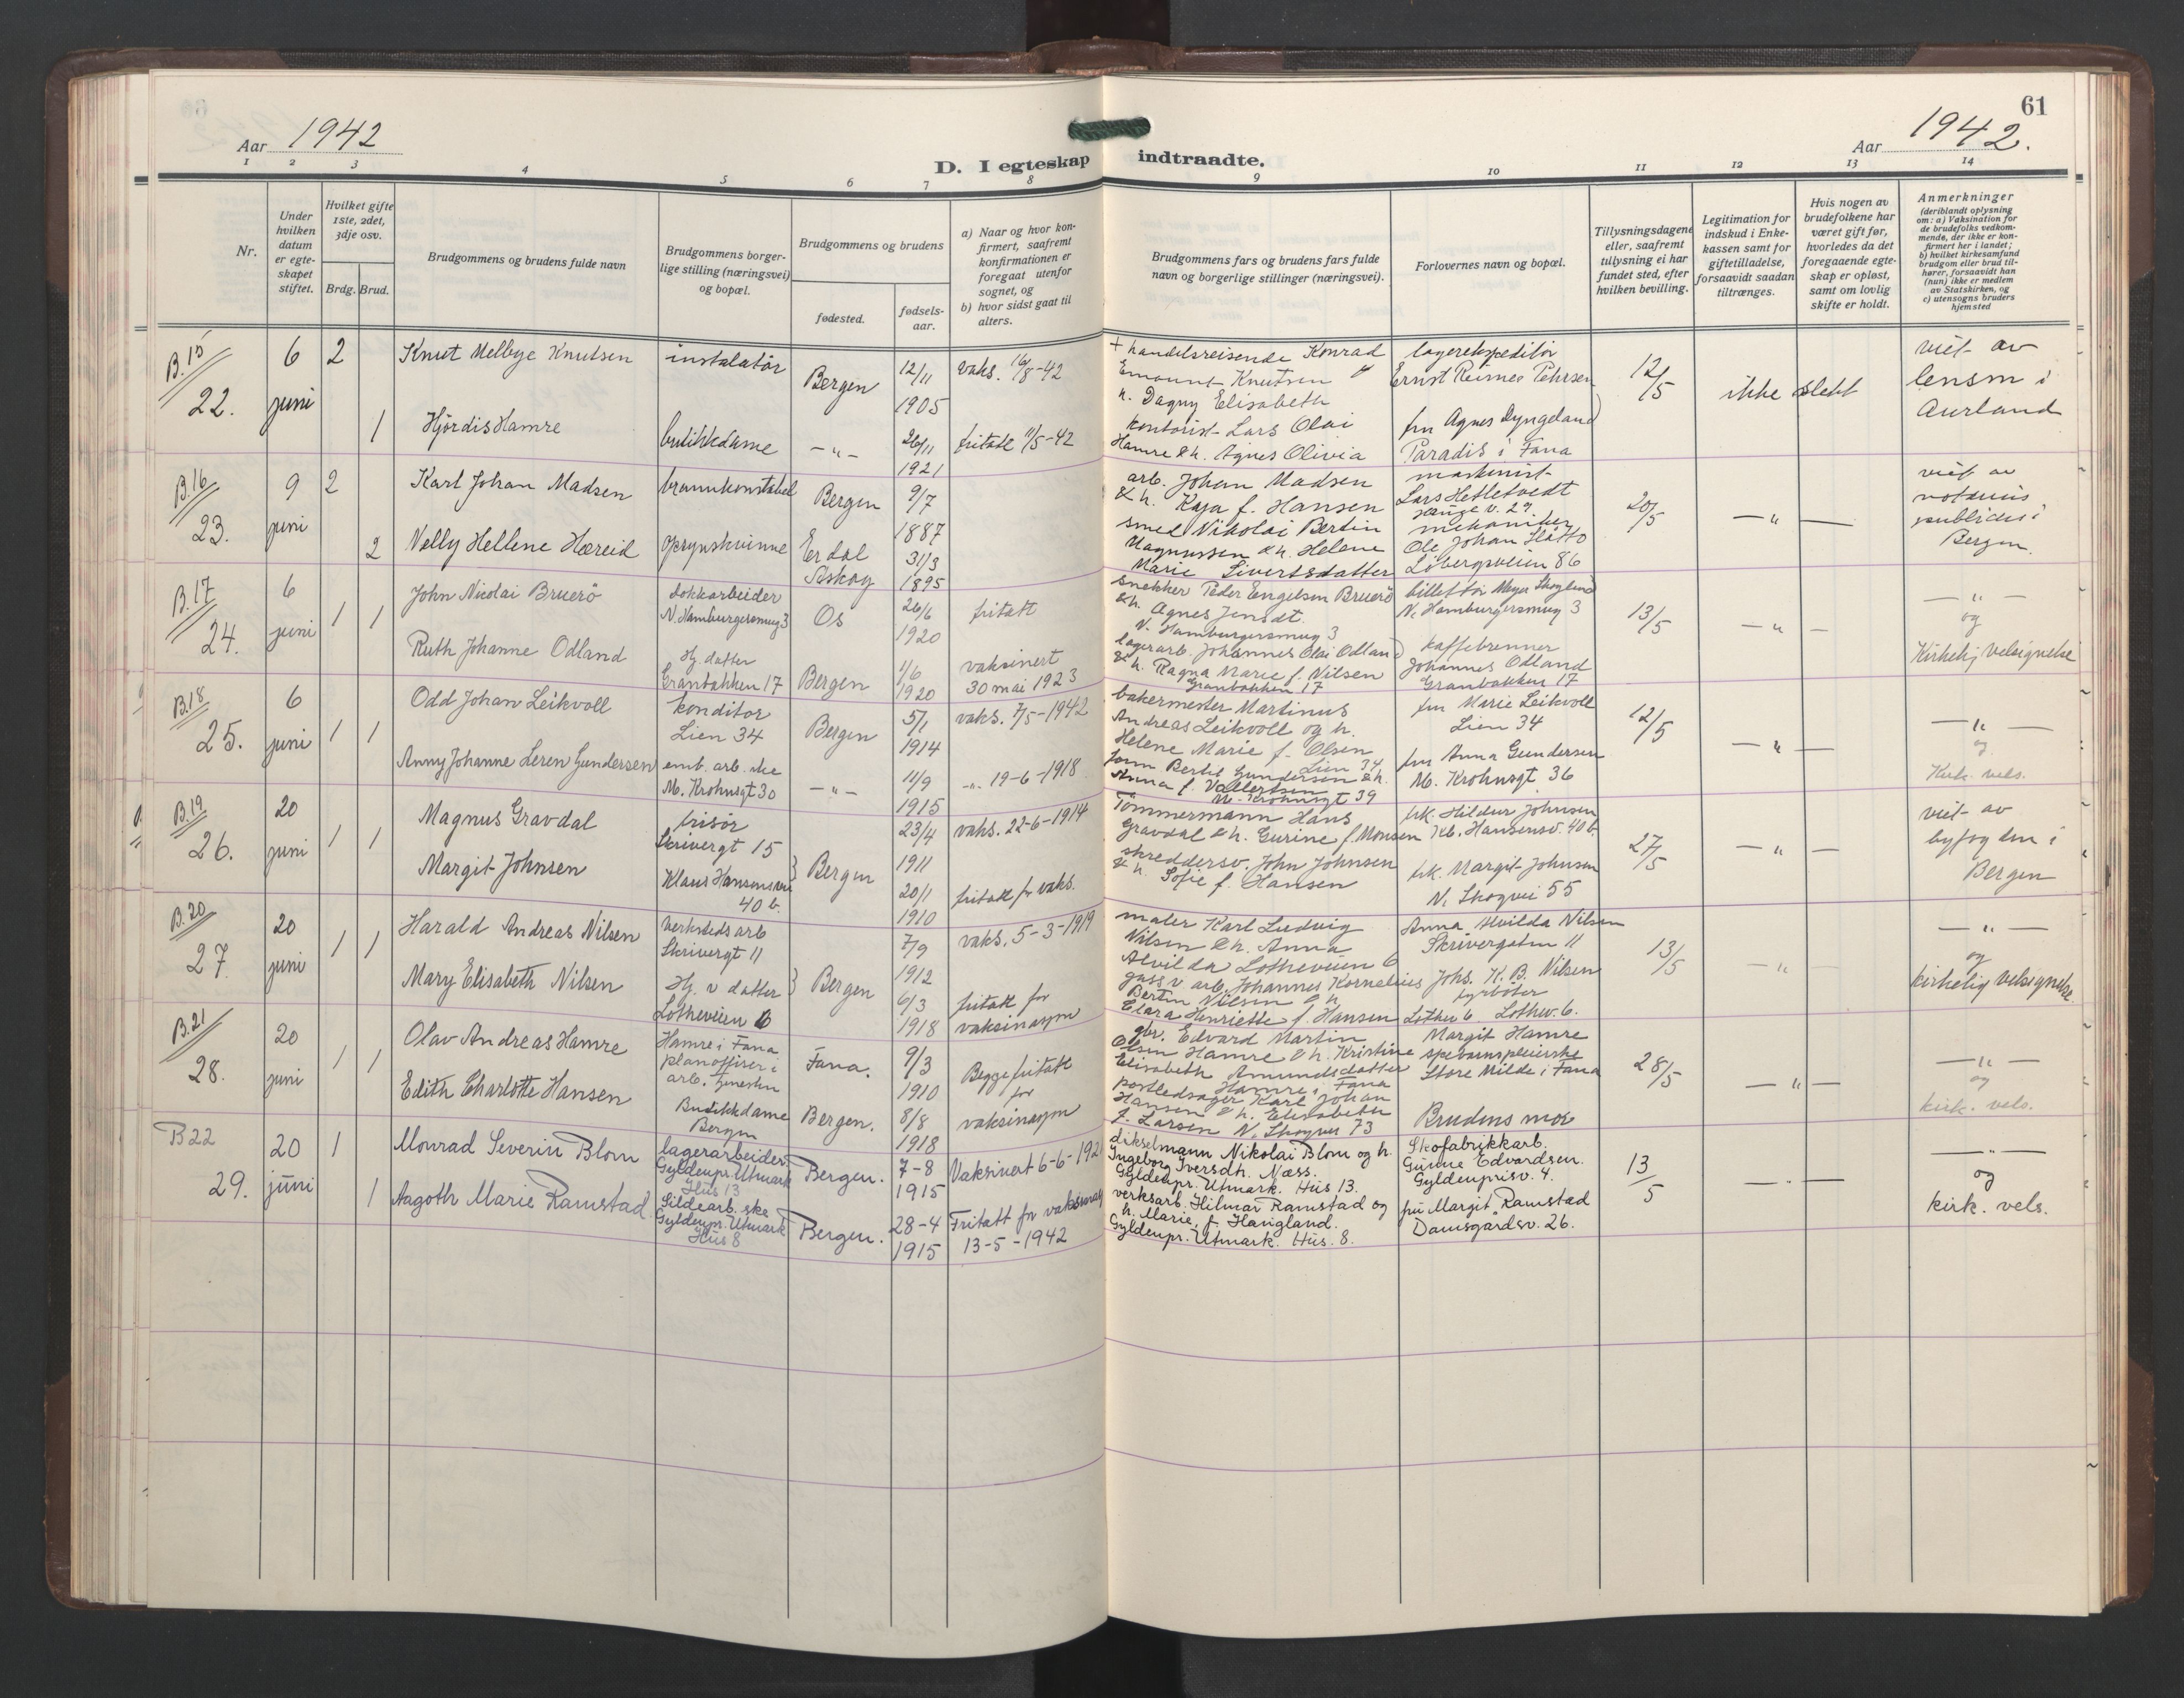 61
Aar 1942
Aar 1942.
D. I egteskap indtraadte.
1 2 3 4 5 6 7 8 9 10 11 12 13 14
Nr.
Under hvilken datum er egte-skapet stiftet.
Hvilket gifte 1ste, 2det, 3dje osv.
Brdg. Brud.
Brudgommens og brudens fulde navn
Brudgommens borger-lige stilling (næringsvei) og bopæl.
Brudgommens og brudens
fødested.
fødsels-aar.
a) Naar og hvor kon-firmert, saafremt konfirmationen er foregaat utenfor sognet, og
b) hvor sidst gaat til alters.
Brudgommens fars og brudens fars fulde navn og borgerlige stillinger (næringsvei).
Forlovernes navn og bopæl.
Tillysningsdagene eller, saafremt tillysning ei har fundet sted, efter hvilken bevilling.
Legitimation for indskud i Enke-kassen samt for giftetilladelse, forsaavidt saadan tiltrænges.
Hvis nogen av brudefolkene har været gift før, hvorledes da det foregaaende egte-skap er opløst, samt om lovlig skifte er holdt.
Anmerkninger
(deriblandt oplysning om: a) Vaksination for de brudefolks vedkom-mende, der ikke er kon-firmert her i landet; b) hvilket kirkesamfund brudgom eller brud til-hører, forsaavidt han (hun) ikke er medlem av Statskirken, og c) utensogns bruders hjemsted
B.15
22.
6 juni
2
Knut Melbye Knutsen
instalatør
Bergen
12/11 1905
vaks. 16/8-42
+ handelsreisende Konrad
Emount Knutsen og
h. Dagny Elisabeth
lagerekspeditør
Ernst Reimes Pehrsen
12/5
ikke slekt
viet av
lensm i
Aurland
1
Hjørdis Hamre
butikkdame
-"-
26/11 1921
fritatt 11/5-42
kontorist Lars Olai
Hamre & h. Agnes Olivia
fru Agnes Dyngeland
Paradis i Fana
B.16
23.
9 juni
2
Karl Johan Madsen
brannkonstabel
Bergen
9/7 1887
arb. Johan Madsen
& h. Kaja f. Hansen
maskinist
Lars Hetletvedt
Hauge v. 27.
20/5
-"-
viet av
notarius
publicus i
Bergen.
2
Nelly Hellene Hæreid
opsynskvinne
Erdal
Askøy
31/3 1895
smed Nikolai Bertin
Magnussen & h. Helene
Marie Sivertsdatter
mekaniker
Ole Johan Slåtto
Løbergsveien 86
B.17
24.
6 juni
1 1
John Nicolai Bruerö
dokkarbeider
N. Hamburgersmug 3
Os
26/6 1920
fritatt
snekker Peder Engelsen Bruerö
& h. Agnes Jensdt.
N. Hamburgersmug 3
billettør Meyer Skoglund
N. Hamburgersmug 3
13/5
-"-
-"-
og
Kirkelig velsignelse
Ruth Johanne Odland
Hj. datter
Granbakken 17
Bergen
1/6 1920
vaksinert
30 mai 1923
lagerarb. Johannes Olai Odland
& h. Ragna Marie f. Nilsen
Granbakken 17
kaffebrenner
Johannes Odland
Granbakken 17
B.18
25.
6 juni
1 1
Odd Johan Leikvoll
konditor
Lien 34
Bergen
5/1 1914
vaks. 7/5-1942
bakermester Martinus
Andreas Leikvoll og h.
Helene Marie f. Olsen
Lien 34
fru Marie Leikvoll
Lien 34
12/5
-"-
-"-
og
Kirk. vels.
Anny Johanne Leren Gundersen
emb. arb. ske
M. Krohnsgt 30
-"-
11/9 1915
-"- 19-6-1918
form Bertel Gundersen & h.
Anna f. Vallertsen
M. Krohnsgt 39
fru Anna Gundersen
M. Krohnsgt 36
B.19
26.
20 juni
1 1
Magnus Gravdal
frisør
Skrivergt 15
Bergen
23/4 1911
vaks. 22-6-1914
Tömmermann Hans
Gravdal & h. Gurine f. Monsen
frk. Hildur Johnsen
Kl. Hansensv. 40 b.
27/5
-"-
viet av
byfogden i
Bergen
Margit Johnsen
Klaus Hansens vei
40 b.
20/1 1910
fritatt for vaks.
skreddersv. John Johnsen
& h. Sofie f. Hansen
frk. Margit Johnsen
N. Skogvei 55
B.20
27.
20 juni
1 1
Harald Andreas Nilsen
Verksteds arb
Skrivergt 11
Bergen
7/9 1912
vaks. 5-3-1919
maler Karl Ludvig
Nilsen & h. Anna
Alvilda Lotheveien 6
Anna Alvilda Nilsen
Skrivergaten 11
13/5
-"-
-"-
og
kirkelig velsignelse.
Mary Elisabeth Nilsen
Hj. v datter
Lotheveien 6
6/3 1918
fritatt for
vaksinasjon
gass v arb. Johannes Kornelius
Bertin Nilsen & h
Clara Henriette f. Hansen Lothev 6
Johs. K. B. Nilsen
fyrbøter
Lothev. 6.
B.21
28.
20 juni
1 1
Olav Andreas Hamre
Hamre i Fana
planoffiser i
arb. tjenesten
Fana.
9/3 1910
Begge fritatt
for
vaksinasjon
gbr. Edvard Martin
Olsen Hamre & h. Kristine
Elisabeth Amundsdatter
Hamre i Fana
Margit Hamre
spebarnspleierske
Store Milde i Fana
28/5
-"-
-"-
og
kirk. vels.
Edith Charlotte Hansen
Butikkdame
Bergen
Bergen.
8/8 1918
postledsager Karl Johan
Hansen & h. Elisabeth
f. Larsen N. Skogvei 73
Brudens mor
B22
29.
20 juni
1
Monrad Severin Blom
lagerarbeider.
Gyldenpr. Utmark
Hus 13
Bergen.
7-8 1915
Vaksinert 6-6-192
dikselmann Nikolai Blom og h.
Ingeborg Iversdh. Næss.
Gyldenpr. Utmark. Hus 13.
Skofabrikkarb.
Gunne Edvardsen.
Gyldenprisv. 4.
13/5
-"-
-"-
og
kirk. vels.
1
Aagoth Marie Ramstad.
Sildearb. ske
Gyldenpr. Utmark
Hus 8
Bergen.
28-4 1915
Fritatt for vaksinasj
13-5-1942
verksarb. Hilmar Ramstad og
h. Marie, f. Haugland.
Gyldenpr. Utmark. Hus. 8.
fru Margit Ramstad
Damsgardsv. 26.